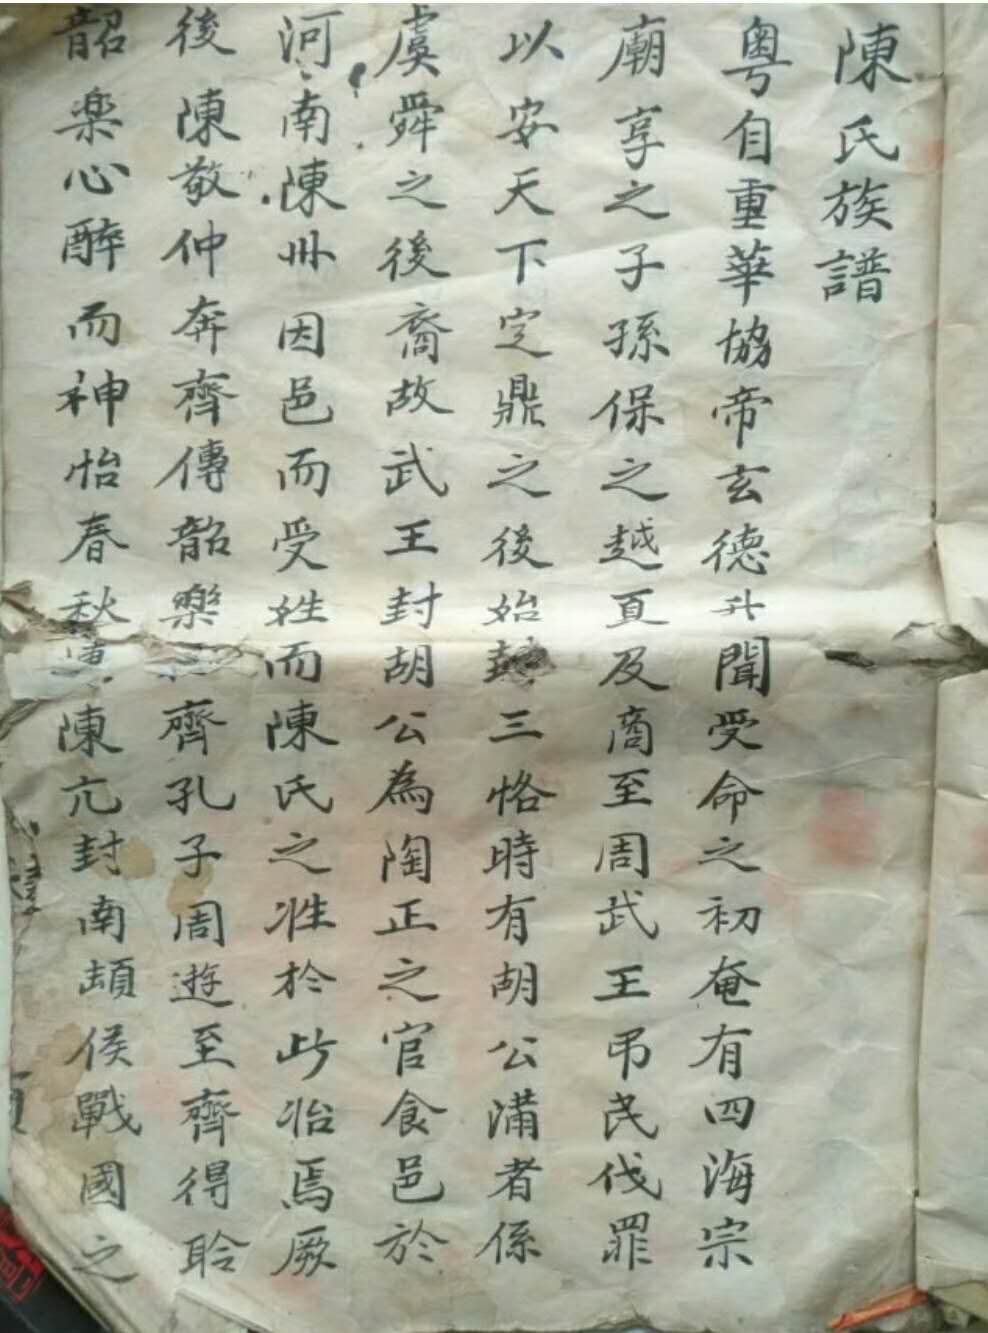 陳氏族譜
粵自重華協帝玄德升聞受命之初奄有四海宗
廟享之子孫保之越夏及商至周武王弔民伐罪
以安天下定鼎之後始封三恪時有胡公满者係
虞舜之後裔故武王封胡公為陶正之官食邑於
河南陳州因邑而受姓而陳氏之性於此始焉厥
後陳敬仲奔齊傳韶樂齊孔子周遊至齊得聆
韶楽心醉而神怡春秋陳亢封南頓侯戰國之